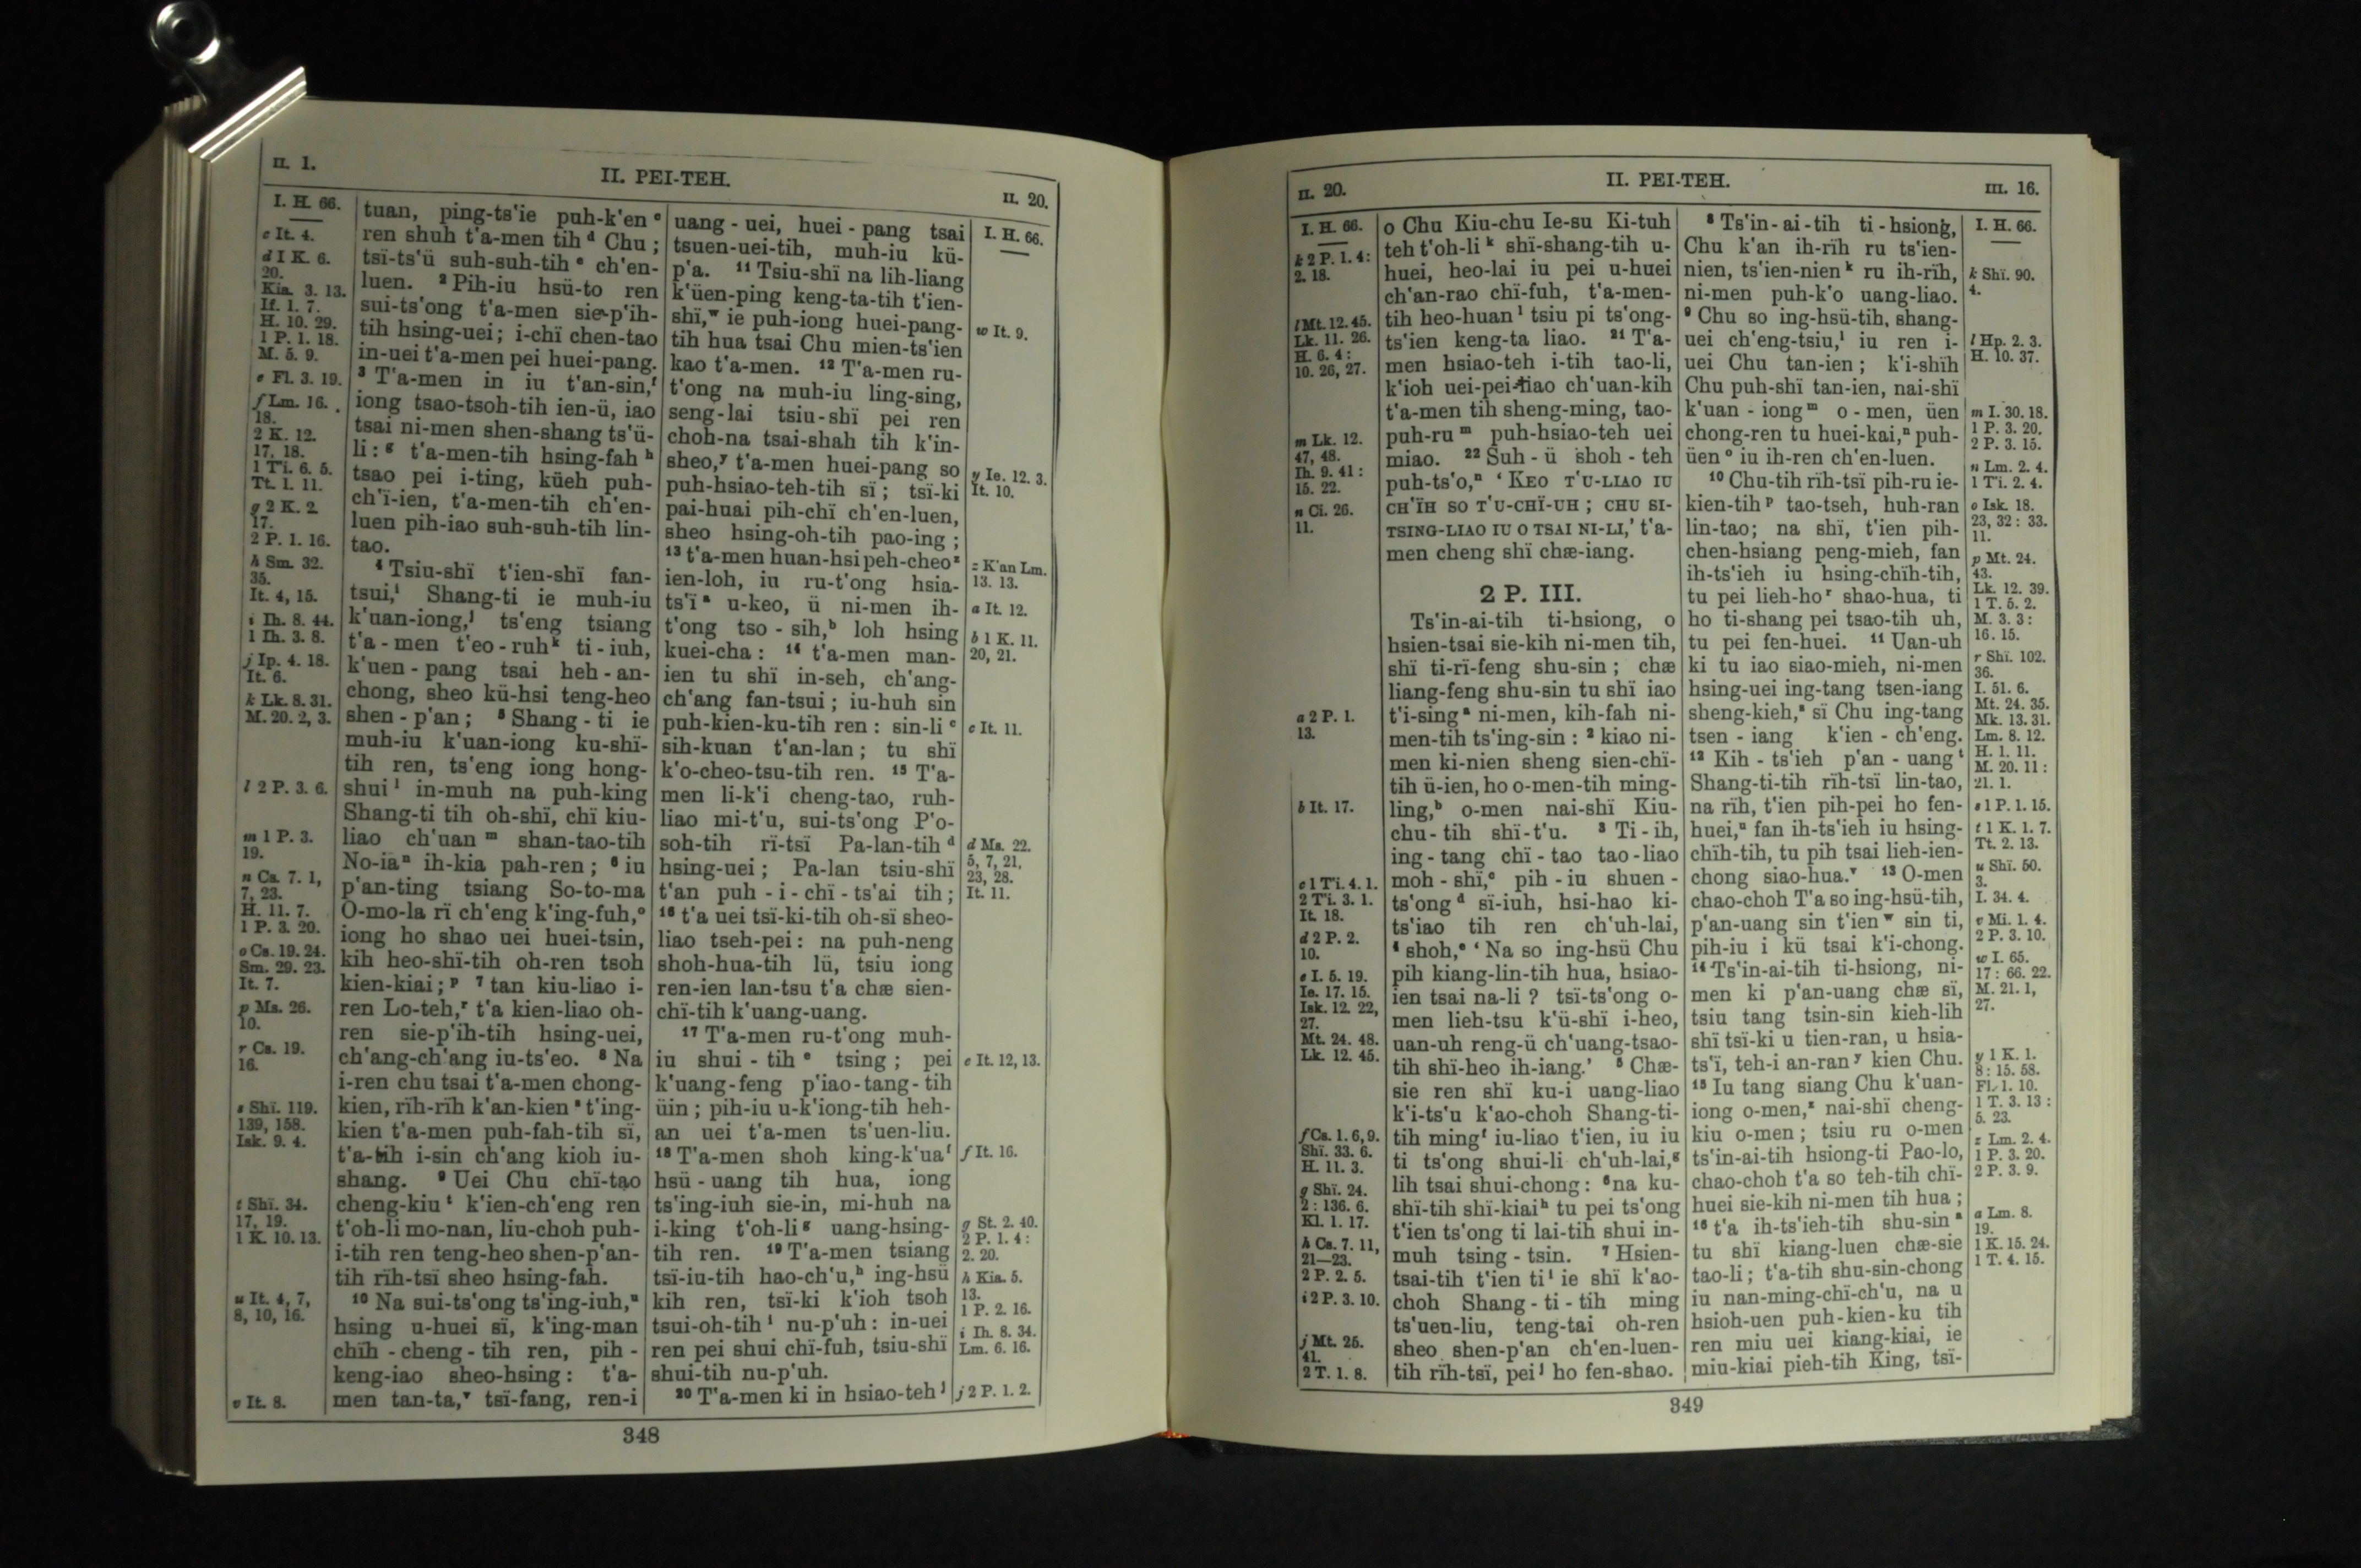 II. 1.
II. PEI-TEH.
II. 20.
I. H. 66.
c It. 4.
d I K. 6.
20.
Kia. 3. 13.
If. 1. 7.
H. 10. 29.
1 P. 1. 18.
M. 5. 9.
e Fl. 3. 19.
f Lm. 16.
18.
2 K. 12.
17, 18.
1 Ti. 6. 5.
Tt. 1. 11.
g 2 K. 2.
17.
2 P. 1. 16.
h Sm. 32.
35.
It. 4, 15.
i Ih. 8. 44.
1 Ih. 3. 8.
j Ip. 4. 18.
It. 6.
k Lk. 8. 31.
M. 20. 2, 3.
l 2 P. 3. 6.
m 1 P. 3.
19.
n Ca. 7. 1,
7, 23.
H. 11. 7.
1 P. 3. 20.
o Cs. 19. 24.
Sm. 29. 23.
It. 7.
p Ms. 26.
10.
r Cs. 19.
16.
s Shï. 119.
139, 158.
Isk. 9. 4.
t Shï. 34.
17, 19.
1 K. 10. 13.
u It. 4, 7,
8, 10, 16.
v It. 8.
tuan, ping-ts'ie puh-k'en c
ren shuh t'a-men tih d Chu ;
tsï-ts'ü suh-suh-tih e ch'en-
luen. 2 Pih-iu hsü-to ren
sui-ts'ong t'a-men sie-p'ih-
tih hsing-uei; i-chï chen-tao
in-uei t'a-men pei huei-pang.
3 T'a-men in iu t'an-sin, f
iong tsao-tsoh-tih ien-ü, iao
tsai ni-men shen-shang ts'ü-
li : g t'a-men-tih hsing-fah h
tsao pei i-ting, küeh puh-
ch'ï-ien, t'a-men-tih ch'en-
luen pih-iao suh-suh-tih lin-
tao.
4 Tsiu-shï t'ien-shï fan-
tsui, i Shang-ti ie muh-iu
k'uan-iong, j ts'eng tsiang
t'a-men t'eo-ruh k ti-iuh,
k'uen-pang tsai heh-an-
chong, sheo kü-hsi teng-heo
shen-p'an ; 5 Shang-ti ie
muh-iu k'uan-iong ku-shï-
tih ren, ts'eng iong hong-
shui l in-muh na puh-king
Shang-ti tih oh-shï, chï kiu-
liao ch'uan m shan-tao-tih
No-ia n ih-kia pah-ren ; 6 iu
p'an-ting tsiang So-to-ma
O-mo-la rï ch'eng k'ing-fuh, o
iong ho shao uei huei-tsin,
kih heo-shï-tih oh-ren tsoh
kien-kiai ; p 7 tan kiu-liao i-
ren Lo-teh, r t'a kien-liao oh-
ren sie-p'ih-tih hsing-uei,
ch'ang-ch'ang iu-ts'eo. 8 Na
i-ren chu tsai t'a-men chong-
kien, rïh-rïh k'an-kien s t'ing-
kien t'a-men puh-fah-tih sï,
t'a-tih i-sin ch'ang kioh iu-
shang. 9 Uei Chu chï-tao
cheng-kiu t k'ien-ch'eng ren
t'oh-li mo-nan, liu-choh puh-
i-tih ren teng-heo shen-p'an-
tih rïh-tsï sheo hsing-fah.
10 Na sui-ts'ong ts'ing-iuh, u
hsing u-huei sï, k'ing-man
chïh-cheng-tih ren, pih-
keng-iao sheo-hsing: t'a-
men tan-ta, v tsï-fang, ren-i
uang-uei, huei-pang tsai
tsuen-uei-tih, muh-iu kü-
p'a. 11 Tsiu-shï na lih-liang
k'üen-ping keng-ta-tih t'ien-
shï, w ie puh-iong huei-pang-
tih hua tsai Chu mien-ts'ien
kao t'a-men. 12 T'a-men ru-
t'ong na muh-iu ling-sing,
seng-lai tsiu-shï pei ren
choh-na tsai-shah tih k'in-
sheo, y t'a-men huei-pang so
puh-hsiao-teh-tih sï ; tsï-ki
pai-huai pih-chï ch'en-luen,
sheo hsing-oh-tih pao-ing ;
13 t'a-men huan-hsi peh-cheo z
ien-loh, iu ru-t'ong hsia-
ts'ï a u-keo, ü ni-men ih-
t'ong tso-sih, b loh hsing
kuei-cha : 14 t'a-men man-
ien tu shï in-seh, ch'ang-
ch'ang fan-tsui ; iu-huh sin
puh-kien-ku-tih ren : sin-li c
sih-kuan t'an-lan ; tu shï
k'o-cheo-tsu-tih ren. 15 T'a-
men li-k'i cheng-tao, ruh-
liao mi-t'u, sui-ts'ong P'o-
soh-tih rï-tsï Pa-lan-tih d
hsing-uei ; Pa-lan tsiu-shï
t'an puh-i-chï-ts'ai tih ;
16 t'a uei tsï-ki-tih oh-sï sheo-
liao tseh-pei : na puh-neng
shoh-hua-tih lü, tsiu iong
ren-ien lan-tsu t'a chæ sien-
chï-tih k'uang-uang.
17 T'a-men ru-t'ong muh-
iu shui-tih e tsing ; pei
k'uang-feng p'iao-tang-tih
üin ; pih-iu u-k'iong-tih heh-
an uei t'a-men ts'uen-liu.
18 T'a-men shoh king-k'ua f
hsü-uang tih hua, iong
ts'ing-iuh sie-in, mi-huh na
i-king t'oh-li g uang-hsing-
tih ren. 19 T'a-men tsiang
tsï-iu-tih hao-ch'u, h ing-hsü
kih ren, tsï-ki k'ioh tsoh
tsui-oh-tih i nu-p'uh : in-uei
ren pei shui chï-fuh, tsiu-shï
shui-tih nu-p'uh.
20 T'a-men ki in hsiao-teh j
I. H. 66.
w It. 9.
y Ie. 12. 3.
It. 10.
z K'an Lm.
13. 13.
a It. 12.
b 1 K. 11.
20, 21.
c It. 11.
d Ms. 22.
5, 7, 21,
23, 28.
It. 11.
e It. 12, 13.
f It. 16.
g St. 2. 40.
2 P. 1. 4 :
2. 20.
h Kia. 5.
13.
1 P. 2. 16.
i Ih. 8. 34.
Lm. 6. 16.
j 2 P. 1. 2.
348
II. 20.
II. PEI-TEH.
III. 16.
I. H. 66.
k 2 P. 1. 4 :
2. 18.
l Mt. 12. 45.
Lk. 11. 26.
H. 6. 4 :
10. 26, 27.
m Lk. 12.
47, 48.
Ih. 9. 41 :
15. 22.
n Ci. 26.
11.
a 2 P. 1.
13.
b It. 17.
c 1 Ti. 4. 1.
2 Ti. 3. 1.
It. 18.
d 2 P. 2.
10.
e I. 5. 19.
Ie. 17. 15.
Isk. 12. 22,
27.
Mt. 24. 48.
Lk. 12. 45.
f Cs. 1. 6, 9.
Shï. 33. 6.
H. 11. 3.
g Shï. 24.
2 : 136. 6.
Kl. 1. 17.
h Cs. 7. 11,
21—23.
2 P. 2. 5.
i 2 P. 3. 10.
j Mt. 25.
41.
2 T. 1. 8.
o Chu Kiu-chu Ie-su Ki-tuh
teh t'oh-li k shï-shang-tih u-
huei, heo-lai iu pei u-huei
ch'an-rao chï-fuh, t'a-men-
tih heo-huan l tsiu pi ts'ong-
ts'ien keng-ta liao. 21 T'a-
men hsiao-teh i-tih tao-li,
k'ioh uei-pei-liao ch'uan-kih
t'a-men tih sheng-ming, tao-
puh-ru m puh-hsiao-teh uei
miao. 22 Suh-ü shoh-teh
puh-ts'o, n ' KEO T'U-LIAO IU
CH'ÏH SO T'U-CHÏ-UH ; CHU SI-
TSING-LIAO IU O TSAI NI-LI,' t'a-
men cheng shï chæ-iang.
2 P. III.
Ts'in-ai-tih ti-hsiong, o
hsien-tsai sie-kih ni-men tih,
shï ti-rï-feng shu-sin ; chæ
liang-feng shu-sin tu shï iao
t'i-sing a ni-men, kih-fah ni-
men-tih ts'ing-sin : 2 kiao ni-
men ki-nien sheng sien-chï-
tih ü-ien, ho o-men-tih ming-
ling, b o-men nai-shï Kiu-
chu-tih shï-t'u. 3 Ti-ih,
ing-tang chï-tao tao-liao
moh-shï, c pih-iu shuen-
ts'ong d sï-iuh, hsi-hao ki-
ts'iao tih ren ch'uh-lai,
4 shoh, e ' Na so ing-hsü Chu
pih kiang-lin-tih hua, hsiao-
ien tsai na-li ? tsï-ts'ong o-
men lieh-tsu k'ü-shï i-heo,
uan-uh reng-ü ch'uang-tsao-
tih shï-heo ih-iang.' 5 Chæ-
sie ren shï ku-i uang-liao
k'i-ts'u k'ao-choh Shang-ti-
tih ming f iu-liao t'ien, iu iu
ti ts'ong shui-li ch'uh-lai, g
lih tsai shui-chong : 6 na ku-
shï-tih shï-kiai h tu pei ts'ong
t'ien ts'ong ti lai-tih shui in-
muh tsing-tsin. 7 Hsien-
tsai-tih t'ien ti i ie shï k'ao-
choh Shang-ti-tih ming
ts'uen-liu, teng-tai oh-ren
sheo shen-p'an ch'en-luen-
tih rïh-tsï, pei j ho fen-shao.
8 Ts'in-ai-tih ti-hsiong,
Chu k'an ih-rïh ru ts'ien-
nien, ts'ien-nien k ru ih-rïh,
ni-men puh-k'o uang-liao.
9 Chu so ing-hsü-tih, shang-
uei ch'eng-tsiu, l iu ren i-
uei Chu tan-ien ; k'i-shïh
Chu puh-shï tan-ien, nai-shï
k'uan-iong m o-men, üen
chong-ren tu huei-kai, n puh-
üen o iu ih-ren ch'en-luen.
10 Chu-tih rïh-tsï pih-ru ie-
kien-tih p tao-tseh, huh-ran
lin-tao ; na shï, t'ien pih-
chen-hsiang peng-mieh, fan
ih-ts'ieh iu hsing-chïh-tih,
tu pei lieh-ho r shao-hua, ti
ho ti-shang pei tsao-tih uh,
tu pei fen-huei. 11 Uan-uh
ki tu iao siao-mieh, ni-men
hsing-uei ing-tang tsen-iang
sheng-kieh, s sï Chu ing-tang
tsen-iang k'ien-ch'eng.
12 Kih-ts'ieh p'an-uang t
Shang-ti-tih rïh-tsï lin-tao,
na rïh, t'ien pih-pei ho fen-
huei, u fan ih-ts'ieh iu hsing-
chïh-tih, tu pih tsai lieh-ien-
chong siao-hua. v 13 O-men
chao-choh T'a so ing-hsü-tih,
p'an-uang sin t'ien w sin ti,
pih-iu i kü tsai k'i-chong.
14 Ts'in-ai-tih ti-hsiong, ni-
men ki p'an-uang chæ sï,
tsiu tang tsin-sin kieh-lih
shï tsï-ki u tien-ran, u hsia-
ts'ï, teh-i an-ran y kien Chu.
15 Iu tang siang Chu k'uan-
iong o-men, z nai-shï cheng-
kiu o-men ; tsiu ru o-men
ts'in-ai-tih hsiong-ti Pao-lo,
chao-choh t'a so teh-tih chï-
huei sie-kih ni-men tih hua ;
16 t'a ih-ts'ieh-tih shu-sin a
tu shï kiang-luen chæ-sie
tao-li ; t'a-tih shu-sin-chong
iu nan-ming-chï-ch'u, na u
hsioh-uen puh-kien-ku tih
ren miu uei kiang-kiai, ie
miu-kiai pieh-tih King, tsï-
I. H. 66.
k Shï. 90.
4.
l Hp. 2. 3.
H. 10. 37.
m I. 30. 18.
1 P. 3. 20.
2 P. 3. 15.
n Lm. 2. 4.
1 Ti. 2. 4.
o Isk. 18.
23, 32 : 33.
11.
p Mt. 24.
43.
Lk. 12. 39.
1 T. 5. 2.
M. 3. 3 :
16. 15.
r Shï. 102.
36.
I. 51. 6.
Mt. 24. 35.
Mk. 13. 31.
Lm. 8. 12.
H. 1. 11.
M. 20. 11 :
21. 1.
s 1 P. 1. 15.
t 1 K. 1. 7.
Tt. 2. 13.
u Shï. 50.
3.
I. 34. 4.
v Mi. 1. 4.
2 P. 3. 10.
w I. 65.
17 : 66. 22.
M. 21. 1,
27.
y 1 K. 1.
8 : 15. 58.
Fl. 1. 10.
1 T. 3. 13 :
5. 23.
z Lm. 2. 4.
1 P. 3. 20.
2 P. 3. 9.
a Lm. 8.
19.
1 K. 15. 24.
1 T. 4. 15.
349